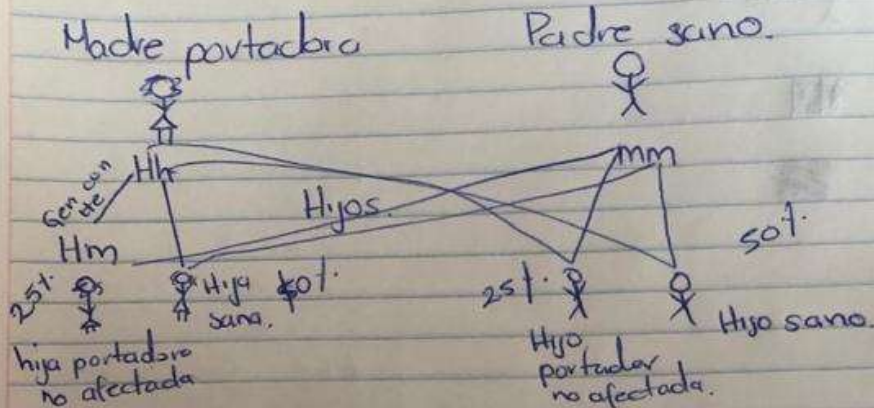 Madre portadora
Padre sano.
Hh
mm
Gen con He
Hijos.
Hm
50%.
25%.
Hija sana.
50%.
25%.
Hijo sano.
hija portadora no afectada
Hijo portador no afectada.